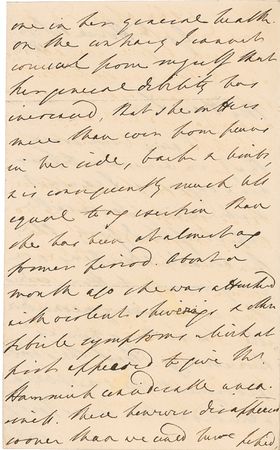 one in her general health
on the contrary I cannot
conceal from myself that
her general debility has
increased, that she suffers
more than ever from pains
in her side, back & limbs
& is consequently much less
equal to any exertion than
she has been at almost any
former period. About a
month ago she was attacked
with violent shiverings & other
febrile symptoms which at
first appeared to give Mr.
Hammick considerable unea
siness. these however disappeared
sooner than we could have hoped.